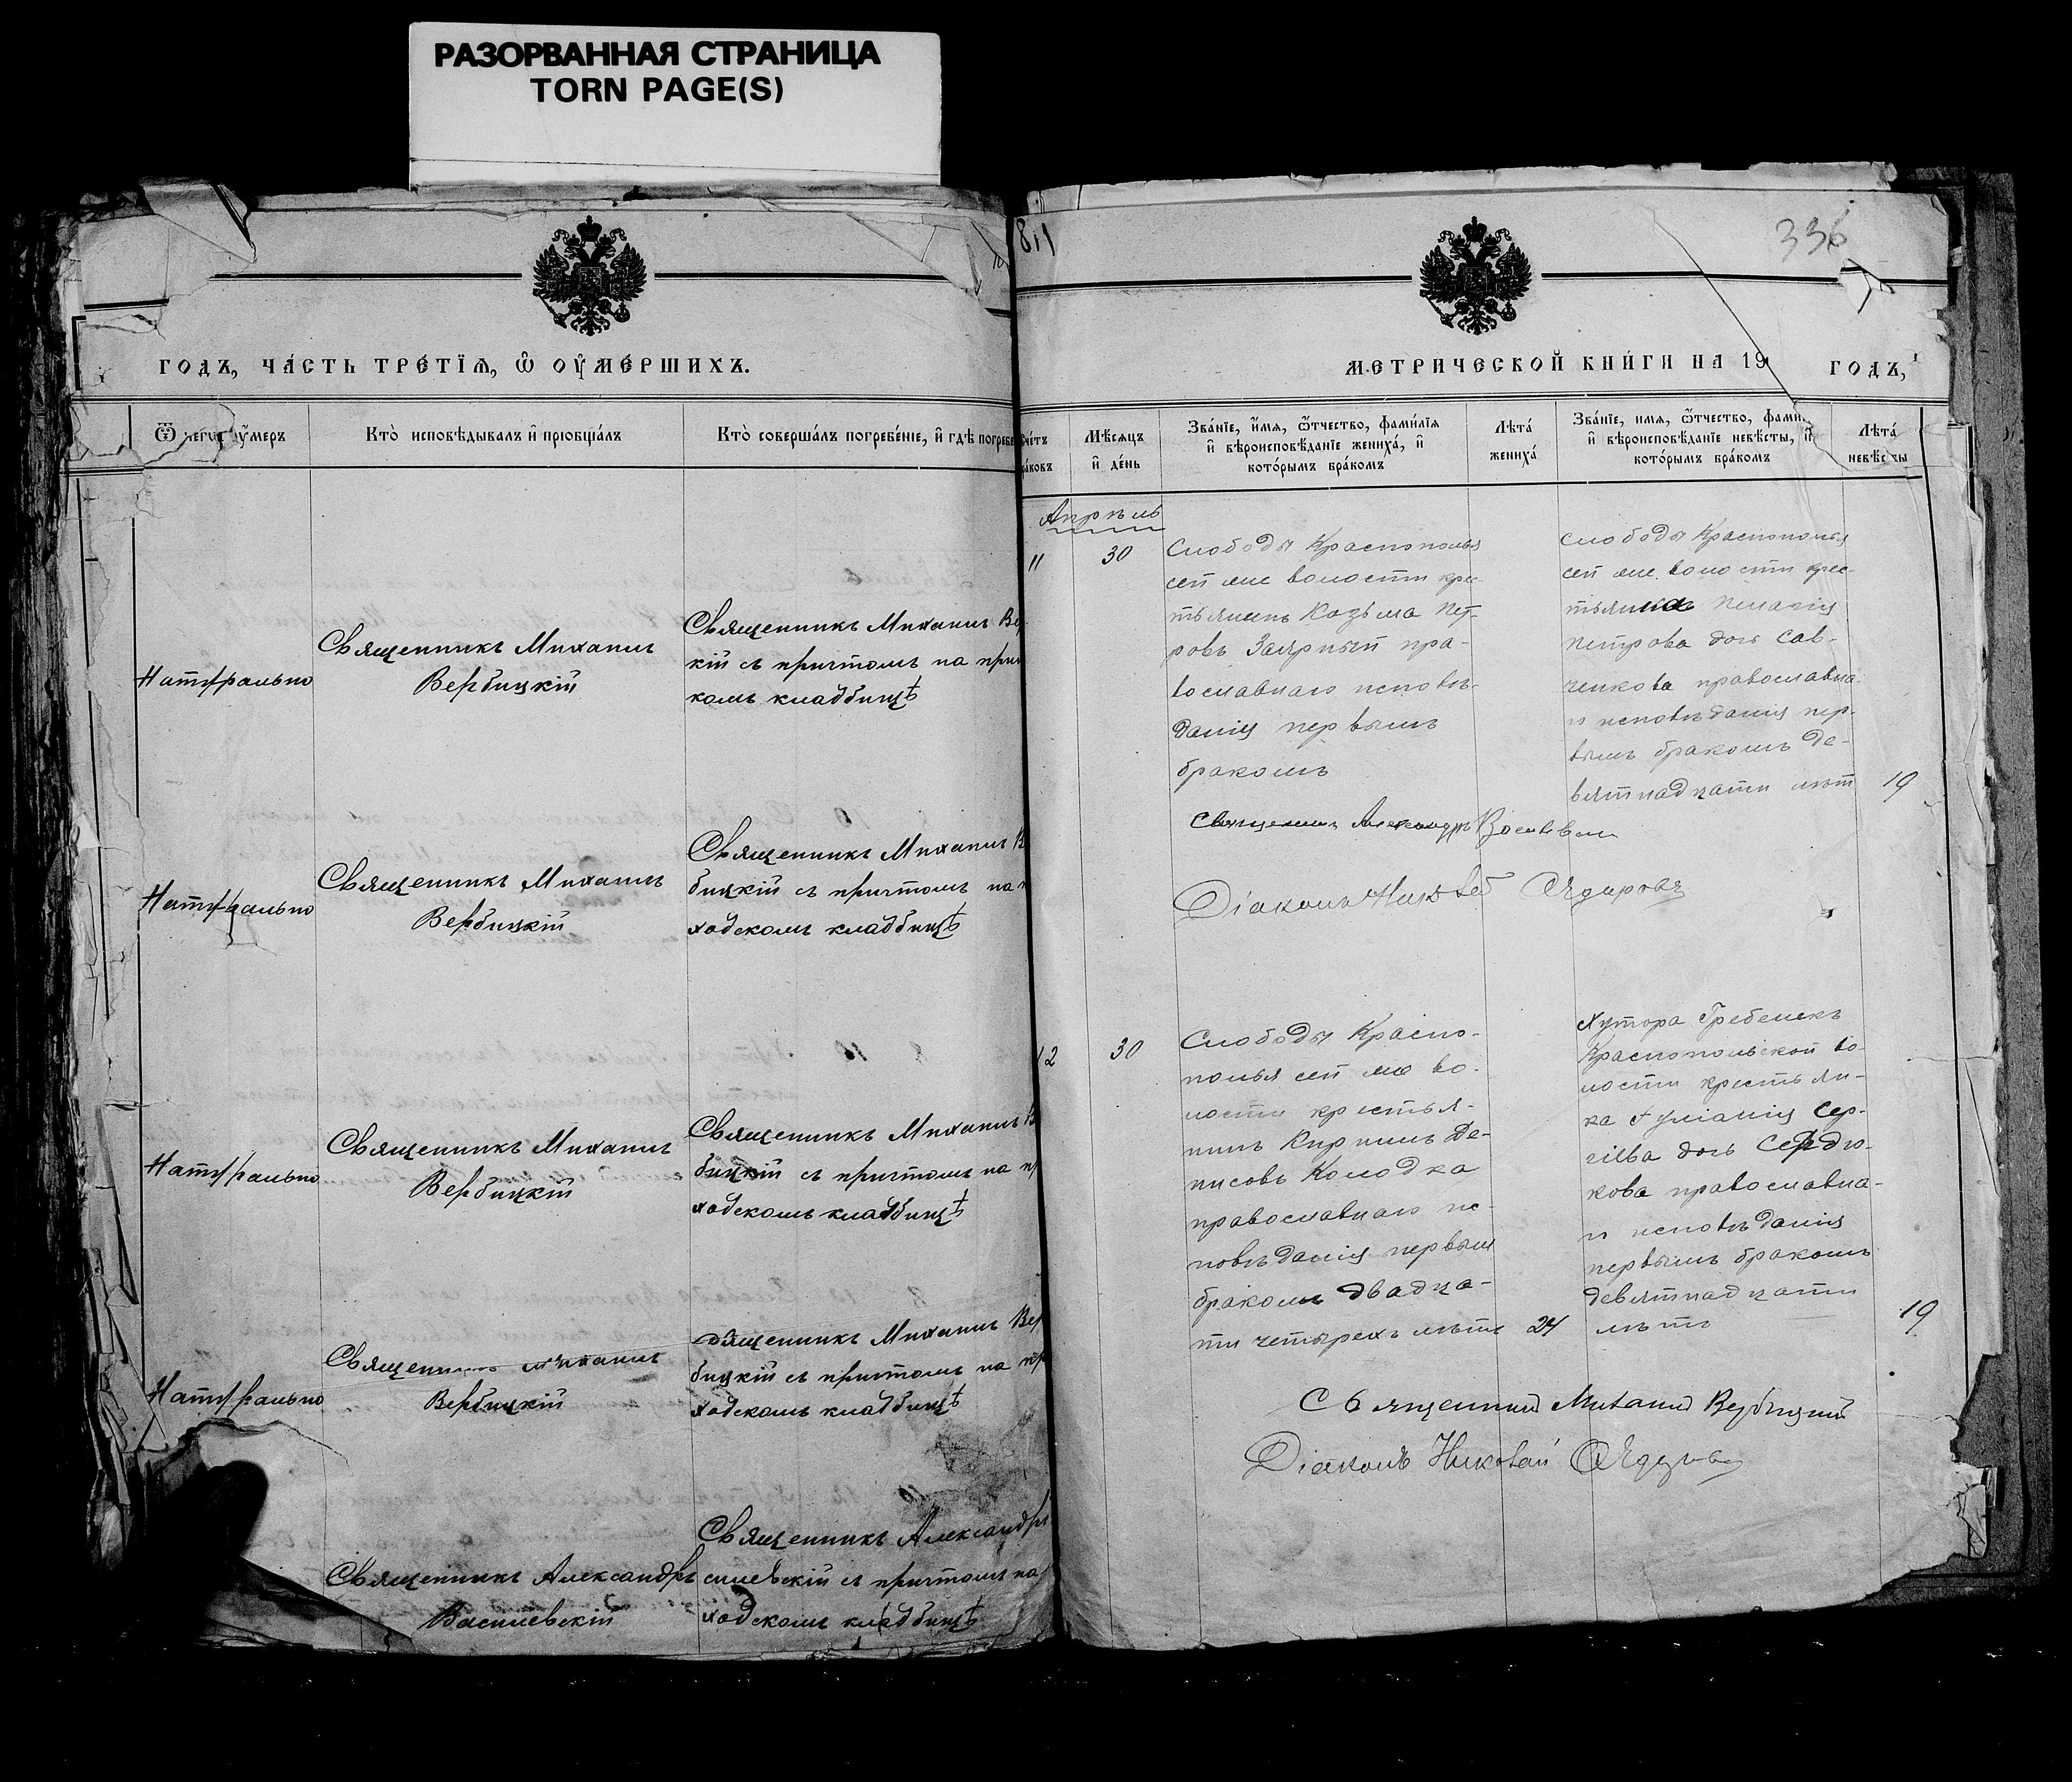 РАЗОРВАННАЯ СТРАНИЦА
TORN PAGE(S)
годъ, часть третїѧ, ѡ оумершихъ.
Кто исповѣдывалъ и прїобщалъ
Кто совершалъ погребенїе, и гдѣ погребе
Натурально
Священникъ Михаилъ
Вербицкій
Священникъ Михаилъ Вер
кій съ причтомъ на при
комъ кладбищѣ
Натурально
Священникъ Михаилъ
Вербицкій
Священникъ Михаилъ В
бицкій съ причтомъ на
ходскомъ кладбищѣ
Натурально
Священникъ Михаилъ
Вербицкій
Священникъ Михаилъ В
бицкій съ причтомъ на пр
ходскомъ кладбищѣ
Натурально
Священникъ Михаилъ
Вербицкій
Священникъ Михаилъ Вер
бицкій съ причтомъ на пр
ходскомъ кладбищѣ
Священникъ Александръ
Василевскій
Священникъ Александръ
силевскій съ причтомъ на
ходскомъ кладбищѣ
336
метрической книги на 19 годъ,
Мѣсѧцъ
и день
Званїе, имѧ, ѿтчество, фамилїѧ
и вѣроисповѣданїе жениха, и
которымъ бракомъ
Лѣта
жениха
Званїе, имѧ, ѿтчество, фами
и вѣроисповѣданїе невѣсты, и
которымъ бракомъ
Лѣта
невѣсты
Апрѣль
11
30
Слободы Краснополья
сей же волости крес-
тьянинъ Козьма Пет-
ровъ Заярный пра-
вославнаго исповѣ-
данія первымъ
бракомъ
Слободы Краснополья
сей же волости крес-
тьянка Пелагія
Петрова дочь Сав-
ченкова православна-
го исповѣданія пер-
вымъ бракомъ де-
вятнадцати лѣт
19
Священникъ Александръ
Діаконъ Николай
12
30
Слободы Красно-
полья сей же во-
лости крестья-
нинъ Кирилъ Де-
нисовъ Колодка
православнаго ис-
повѣданія первым
бракомъ двадца-
ти четырехъ лѣтъ
24
Хутора Гребеникъ
Краснопольской во-
лости крестьян-
ка Іуліанія Сер-
гіева дочь Сердю-
кова православна-
го исповѣданія
первымъ бракомъ
девятнадцати
лѣтъ
19
Священникъ Михаилъ Вербицкій
Діаконъ Николай